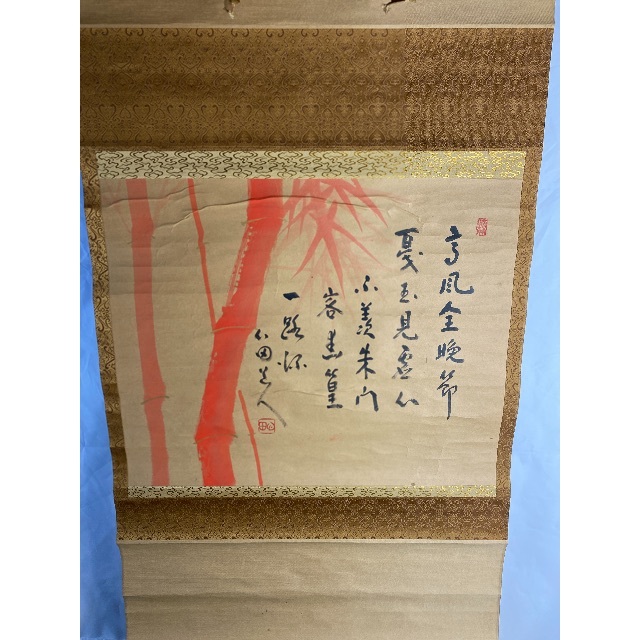 高風全晩節
戛玉見虚心
不羨朱門
客青篁
一路深
公田道人